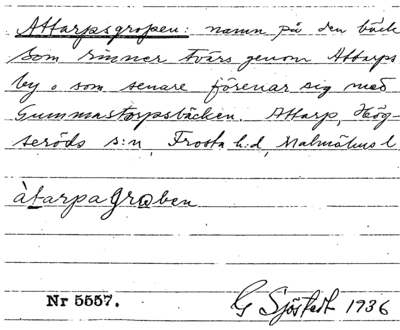 Attarpsgropen: namn på den bäck
som rinner tvärs genom Attarps
by o som senare förenar sig med
Gummastorpsbäcken. Attarp, Hög-
seröds s:n, Frosta h:d, Malmöhus l
àtarpagraben
Nr 5557.
G Sjöstedt 1936